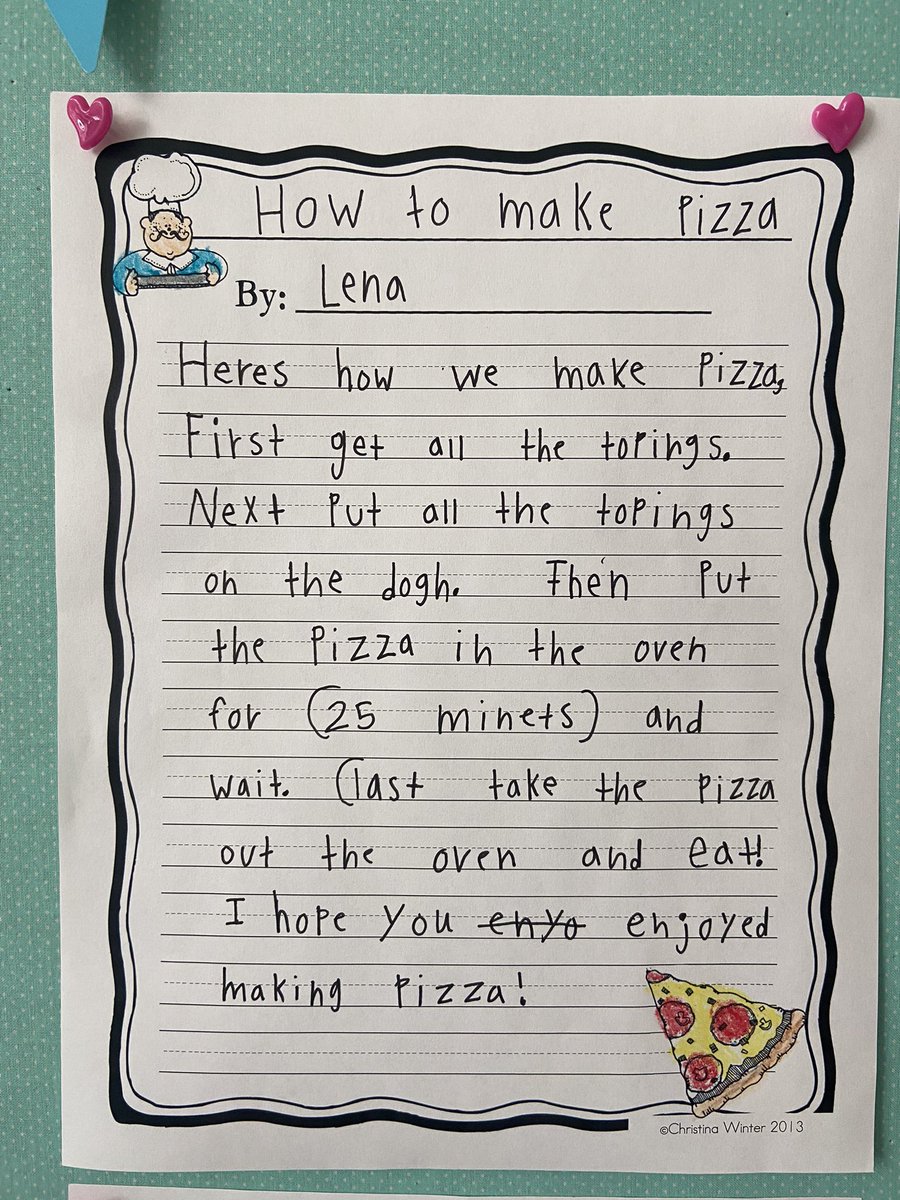 How to make pizza
By: Lena
Heres how we make pizza,
First get all the topings.
Next put all the topings
on the dogh. Then put
the pizza in the oven
for (25 minets) and
wait. (last take the pizza
out the oven and eat!
I hope you enyo enjoyed
making pizza!
©Christina Winter 2013